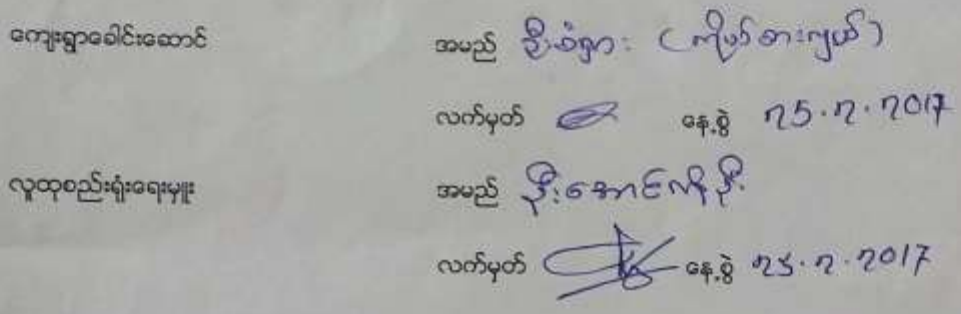 ကျေးရွာခေါင်းဆောင် အမည် ဦးစံရှား (ကိုယ်စားလှယ်)
လက်မှတ် နေ့စွဲ 25.2.2017
လူထုစည်းရုံးရေးမှူး အမည် ဦးအောင်ကိုဦး
လက်မှတ် နေ့စွဲ 25.2.2017